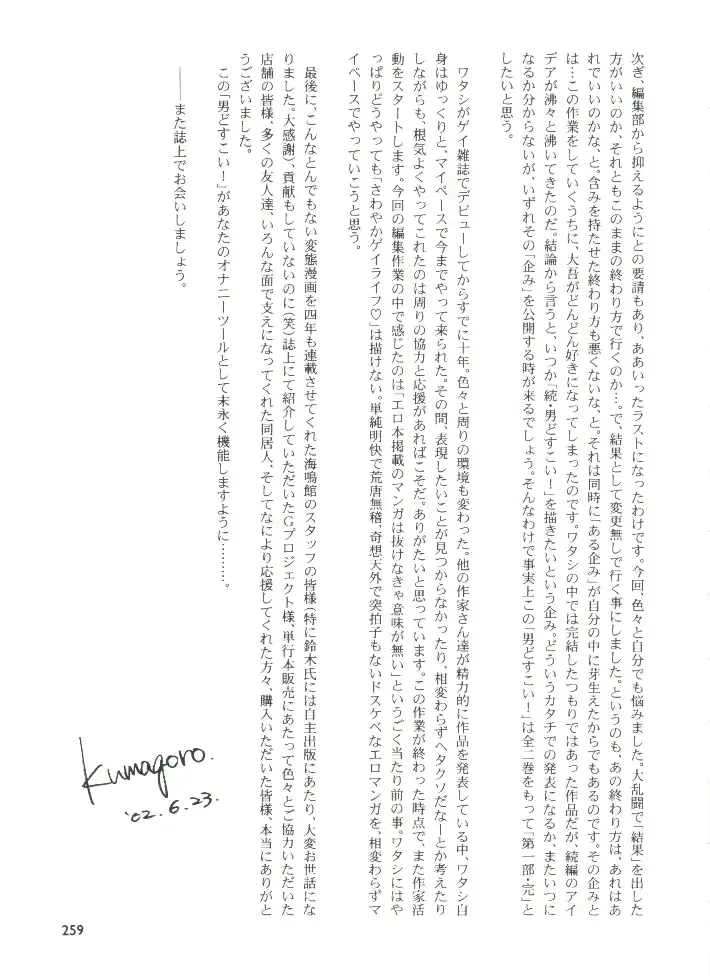 次ぎ、編集部から抑えるようにとの要請もあり、ああいったラストになったわけです。今回、色々と自分でも悩みました。大乱闘で「結果」を出した
方がいいのか、それともこのままの終わり方で行くのか…。で、結果として変更無しで行く事にしました。というのも、あの終わり方は、あれはあ
れでいいのかな、と。含みを持たせた終わり方も悪くないな、と。それは同時に「ある企み」が自分の中に芽生えたからでもあるのです。その企みと
は…この作業をしていくうちに、大吾がどんどん好きになってしまったのです。ワタシの中では完結したつもりではあった作品だが、続編のアイ
デアが沸々と沸いてきたのだ。結論から言うと、いつか「続・男どすこい!」を描きたいという企み。どういうカタチでの発表になるか、またいつに
なるか分からないが、いずれその「企み」を公開する時が来るでしょう。そんなわけで事実上この「男どすこい!」は全二巻をもって「第一部・完」と
したいと思う。
ワタシがゲイ雑誌でデビューしてからすでに十年。色々と周りの環境も変わった。他の作家さん達が精力的に作品を発表している中、ワタシ自
身はゆっくりと、マイペースで今までやって来られた。その間、表現したいことが見つからなかったり、相変わらずヘタクソだなーとか考えたり
しながらも、根気よくやってこれたのは周りの協力と応援があればこそだ。ありがたいと思っています。この作業が終わった時点で、また作家活
動をスタートします。今回の編集作業の中で感じたのは「エロ本掲載のマンガは抜けなきゃ意味が無い」というごく当たり前の事。ワタシにはや
っぱりどうやっても「さわやかゲイライフ♡」は描けない。単純明快で荒唐無稽、奇想天外で突拍子もないドスケベなエロマンガを、相変わらずマ
イペースでやっていこうと思う。
最後に、こんなとんでもない変態漫画を四年も連載させてくれた海鳴館のスタッフの皆様(特に鈴木氏には自主出版にあたり、大変お世話にな
りました。大感謝)、貢献もしていないのに(笑)誌上にて紹介していただいたGプロジェクト様、単行本販売にあたって色々とご協力いただいた
店舗の皆様、多くの友人達、いろんな面で支えになってくれた同居人、そしてなにより応援してくれた方々、購入いただいた皆様、本当にありがと
うございました。
この「男どすこい!」があなたのオナニーツールとして末永く機能しますように………。
――また誌上でお会いしましょう。
Kumagoro.
'02.6.23.
259